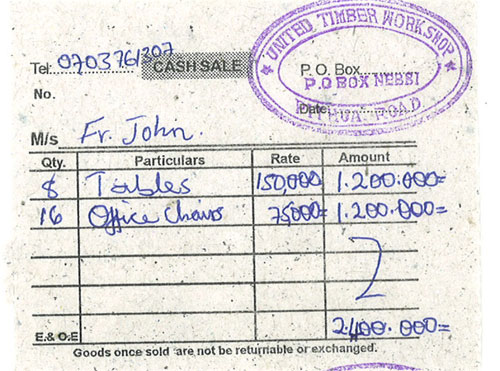 UNITED TIMBER WORKSHOP
Tel: 0703761307 CASH SALE P. O. Box
P.O BOX NEBBI
No. Date:
ROAD
M/s Fr. John.
Qty. Particulars Rate Amount
8 Tables 150,000 1.200.000=
16 Office Chairs 75000= 1.200.000=
E.& O.E 2.400.000=
Goods once sold are not be returnable or exchanged.